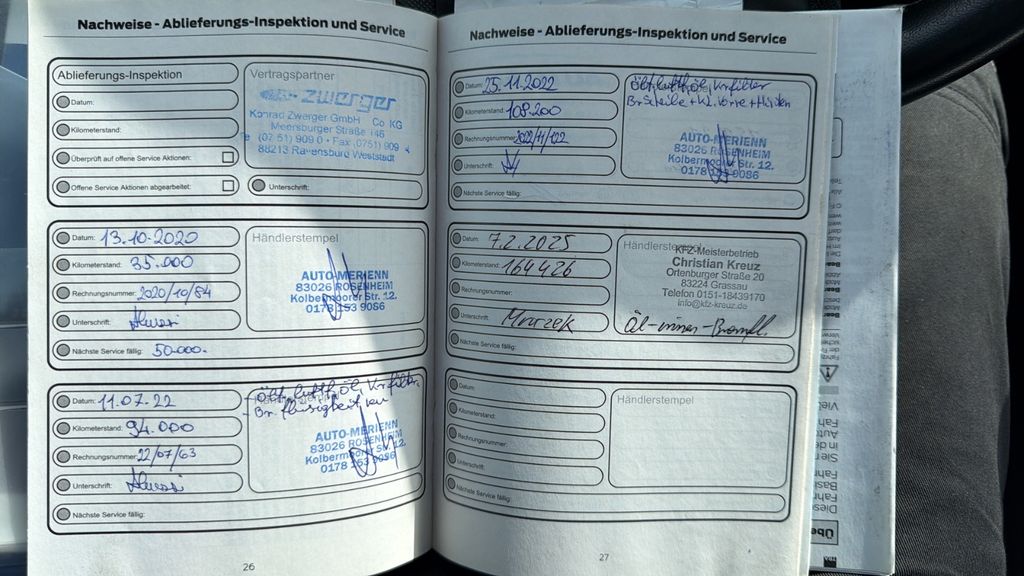 Nachweise - Ablieferungs-Inspektion und Service
Ablieferungs-Inspektion
Datum:
Kilometerstand:
Überprüft auf offene Service Aktionen:
Offene Service Aktionen abgearbeitet:
Vertragspartner
zwerger
Konrad Zwerger GmbH Co KG
Meersburger Straße 146
(07 51) 909 0 • Fax (0751) 909
88213 Ravensburg Weststadt
Unterschrift:
Datum: 13.10.2020
Kilometerstand: 35.000
Rechnungsnummer: 2020/10/84
Unterschrift:
Nächste Service fällig: 50.000.-
Händlerstempel
AUTO-MERIENN
83026 ROSENHEIM
Kolbermoorer Str. 12.
0178 153 9086
Datum: 11.07.22
Kilometerstand: 94.000
Rechnungsnummer: 22/07/63
Unterschrift:
Nächste Service fällig:
Br. flüssigkeit
AUTO-MERIENN
83026 ROSENHEIM
Kolbermoorer Str. 12.
0178 153 9086
26
Nachweise - Ablieferungs-Inspektion und Service
Datum: 25.11.2022
Kilometerstand: 108.200
Rechnungsnummer: 2022/11/122
Unterschrift:
Nächste Service fällig:
Br. Scheibe + Kl. vorne + Hinten
AUTO-MERIENN
83026 ROSENHEIM
Kolbermoorer Str. 12.
0178 153 9086
Datum: 7.2.2025
Kilometerstand: 164426
Rechnungsnummer:
Unterschrift: Mrozek
Nächste Service fällig:
Händlerstempel
KFZ-Meisterbetrieb
Christian Kreuz
Ortenburger Straße 20
83224 Grassau
Telefon 0151-18439170
info@kfz-kreuz.de
Datum:
Kilometerstand:
Rechnungsnummer:
Unterschrift:
Nächste Service fällig:
Händlerstempel
27